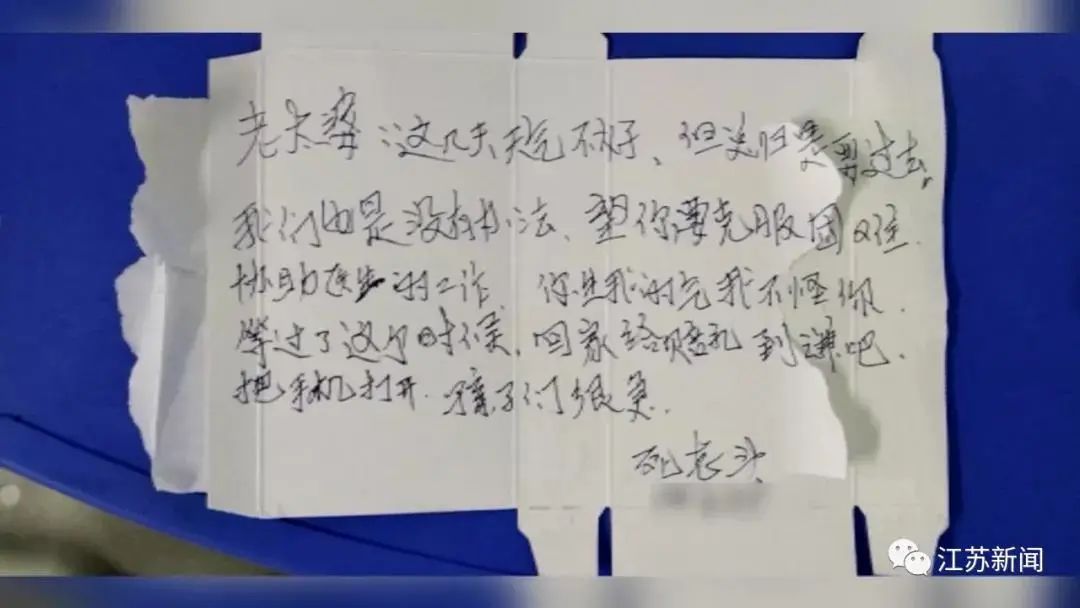 老太婆:这几天天气不好、但总归是要过去。
我们也是没有办法、望你要克服困难.
协助医生的工作. 你生我的气我不怪你.
等过了这个时候,回家给赔礼到谦吧.
把手机打开.孩子们很急.
死老头
江苏新闻